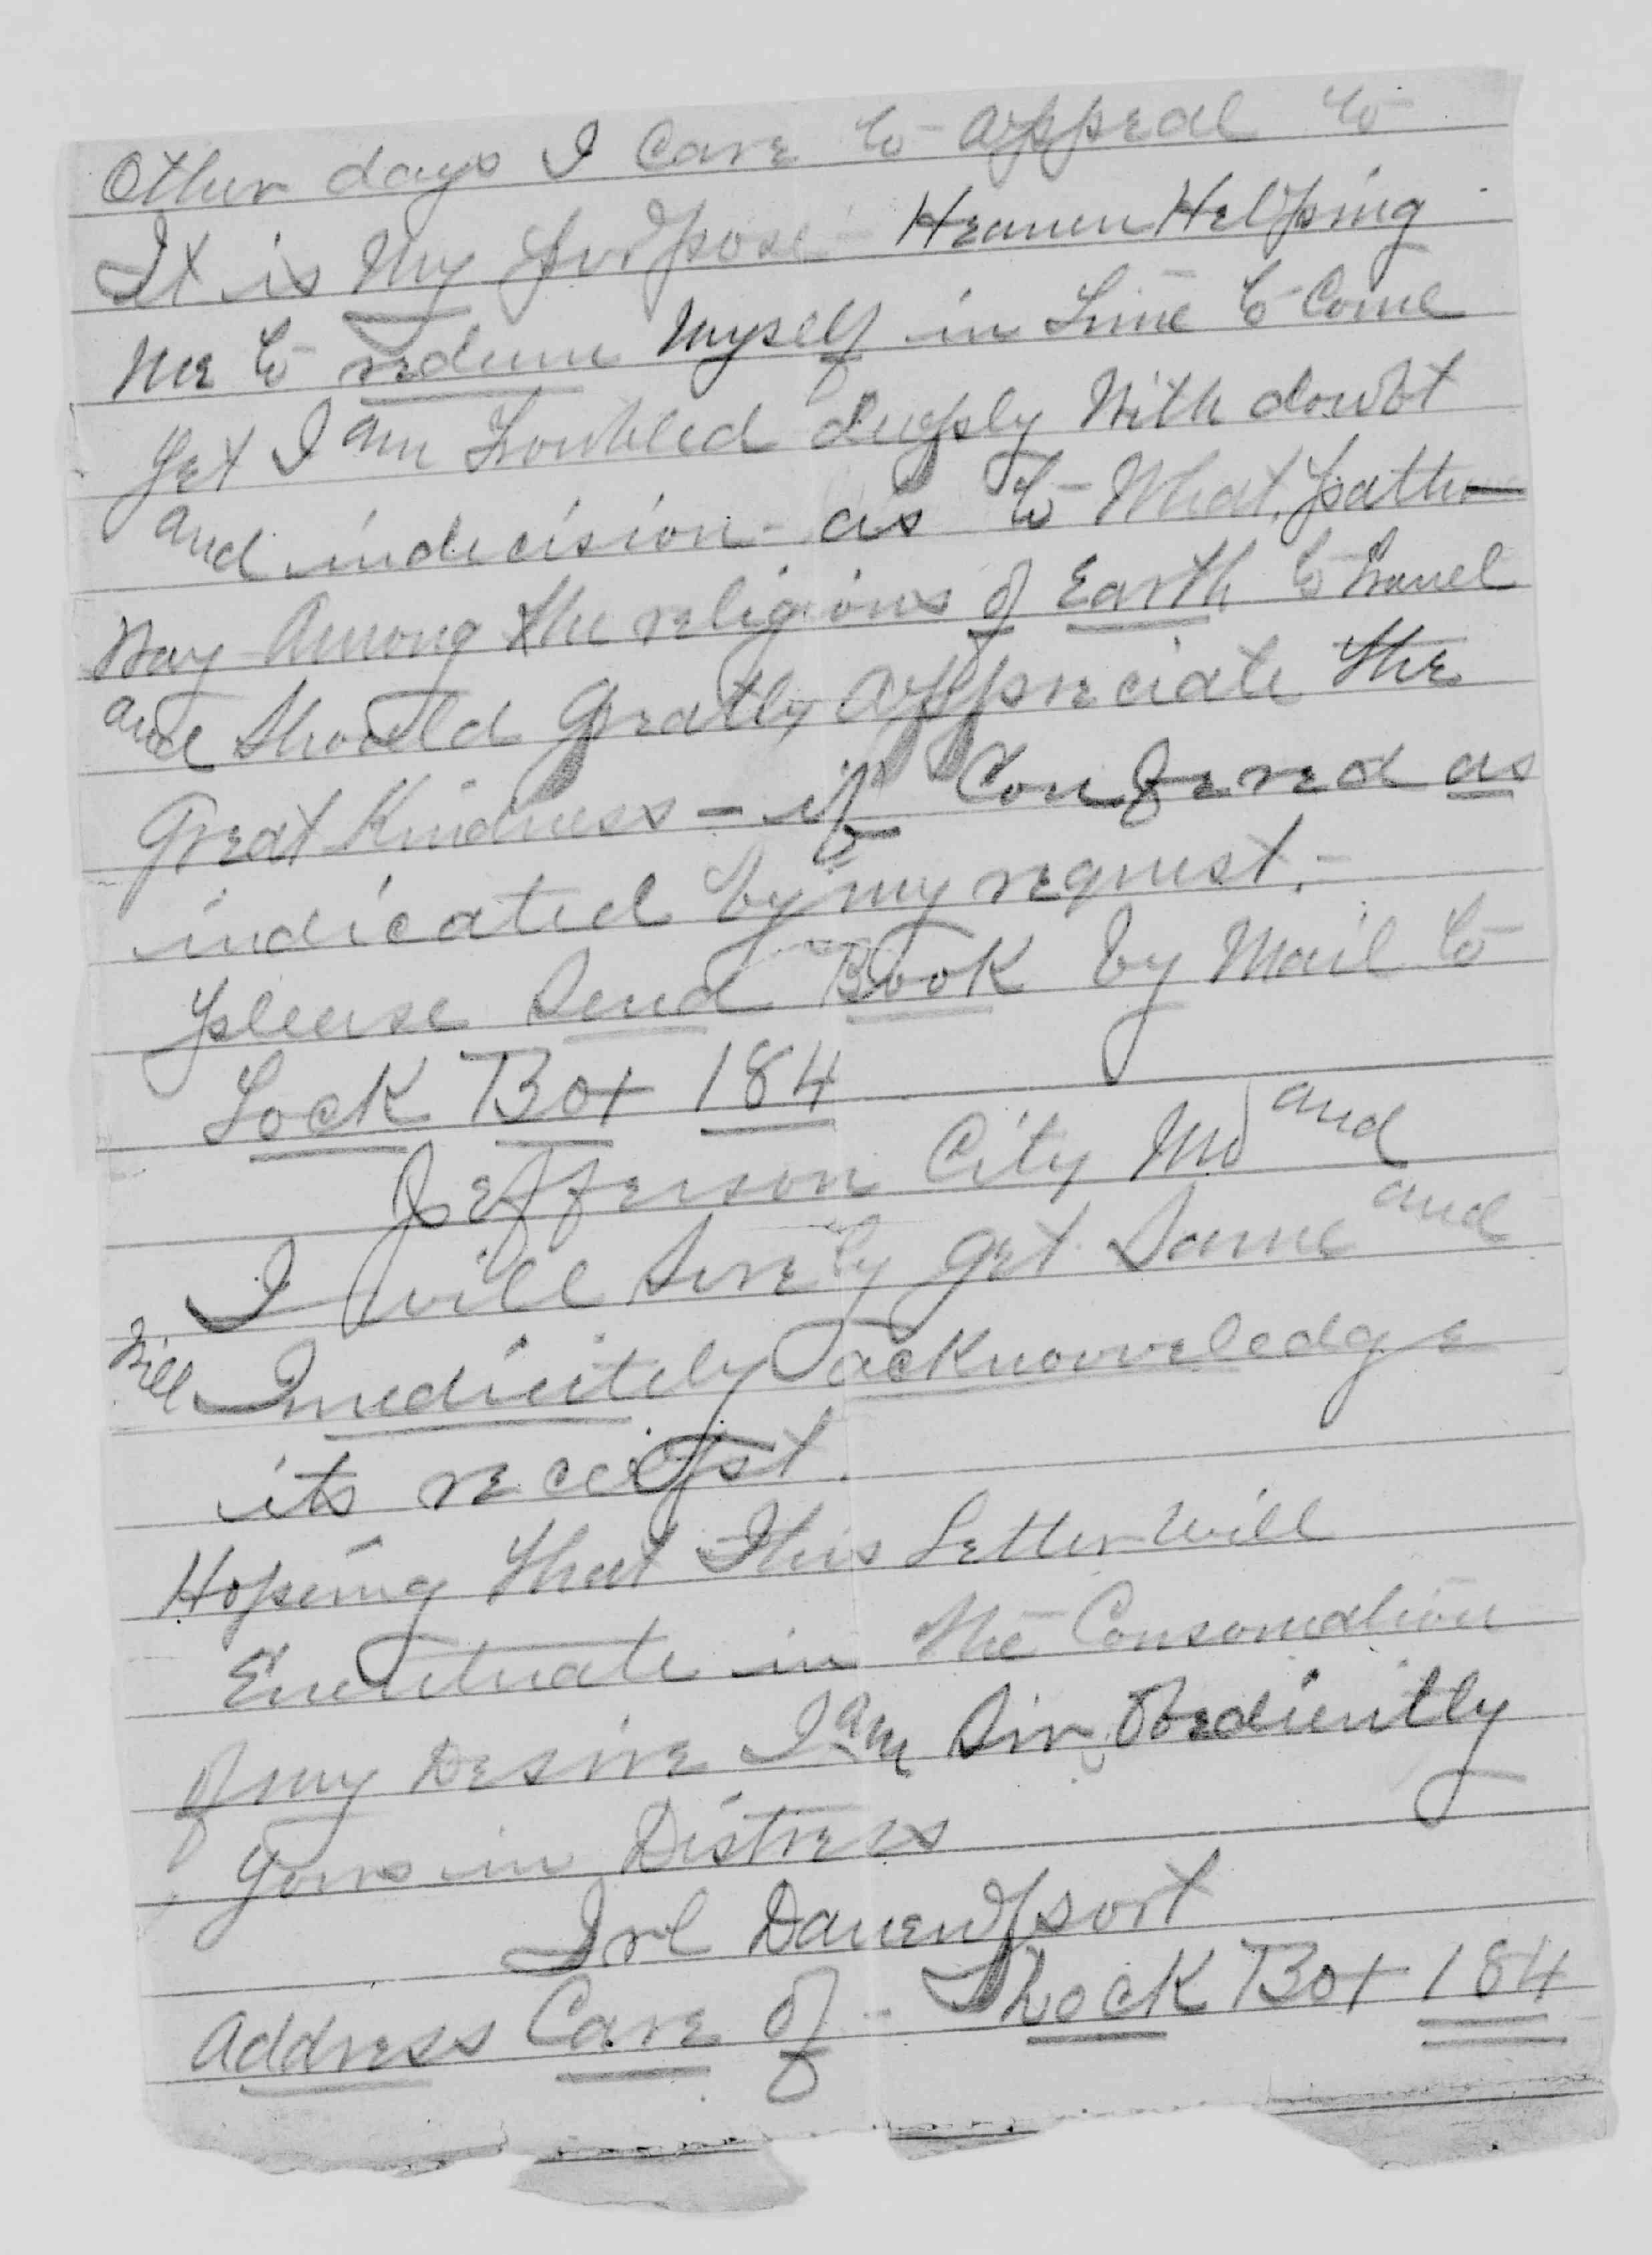 Other days I Care to appeal to
It is My purpose Heaven Helping
Me to redeem Myself in Time to Come
yet I am Troubled deeply With doubt
and indecision - as to What path
Way Among the religions of Earth to Travel
and Should Greatly appreciate the
Great Kindness - if Confered as
indicated by my request. -
please Send Book by Mail to
Lock Box 184
Jefferson City Mo and
I will Surely get Same and
Will Imedicitely acknowweledge
its reciept.
Hopeing that This Letter Will
Eventuate in the Consomation
of my Desire I am Sir, Obediently
Yours in Distress
Irl Davenport
Address Care of - Lock Box 184